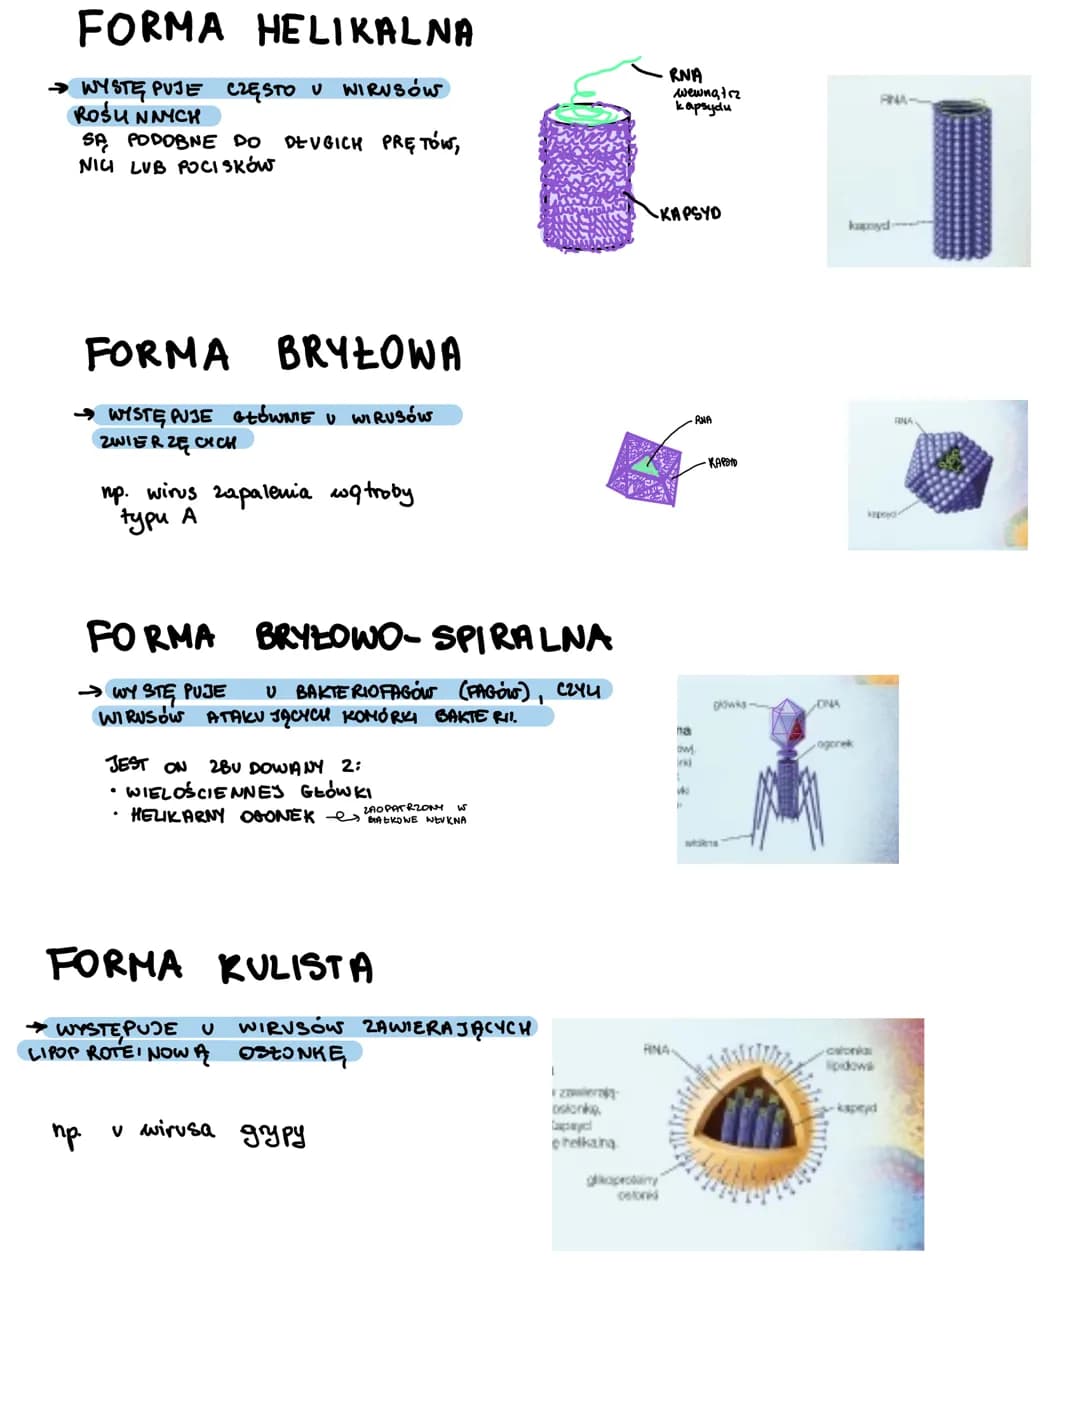 FORMA HELIKALNA
→ WYSTĘPUJE CZĘSTO U WIRUSÓW
ROŚLINNYCH
SĄ PODOBNE DO DŁUGICH PRĘTÓW,
NICI LUB POCISKÓW
RNA
wewnątrz
kapsydu
KAPSYD
RNA
kapsyd
FORMA BRYŁOWA
→ WYSTĘPUJE GŁÓWNIE U WIRUSÓW
ZWIERZĘCYCH
np. wirus zapalenia wątroby
typu A
RNA
KAPSYD
RNA
kapsyd
FORMA BRYŁOWO-SPIRALNA
→ WYSTĘPUJE U BAKTERIOFAGÓW (FAGÓW), CZYLI
WIRUSÓW ATAKUJĄCYCH KOMÓRKI BAKTERII.
JEST ON ZBUDOWANY Z:
• WIELOŚCIENNEJ GŁÓWKI
• HELIKARNY OGONEK → ZAOPATRZONY W
BIAŁKOWE WŁÓKNA
główka
DNA
ogonek
włókna
FORMA KULISTA
→ WYSTĘPUJE U WIRUSÓW ZAWIERAJĄCYCH
LIPOPROTEINOWĄ OSŁONKĘ
np. u wirusa grypy
RNA
osłonka
lipidowa
zawierają-
osłonkę,
kapsyd
helikalną.
kapsyd
glikoproteiny
osłonki